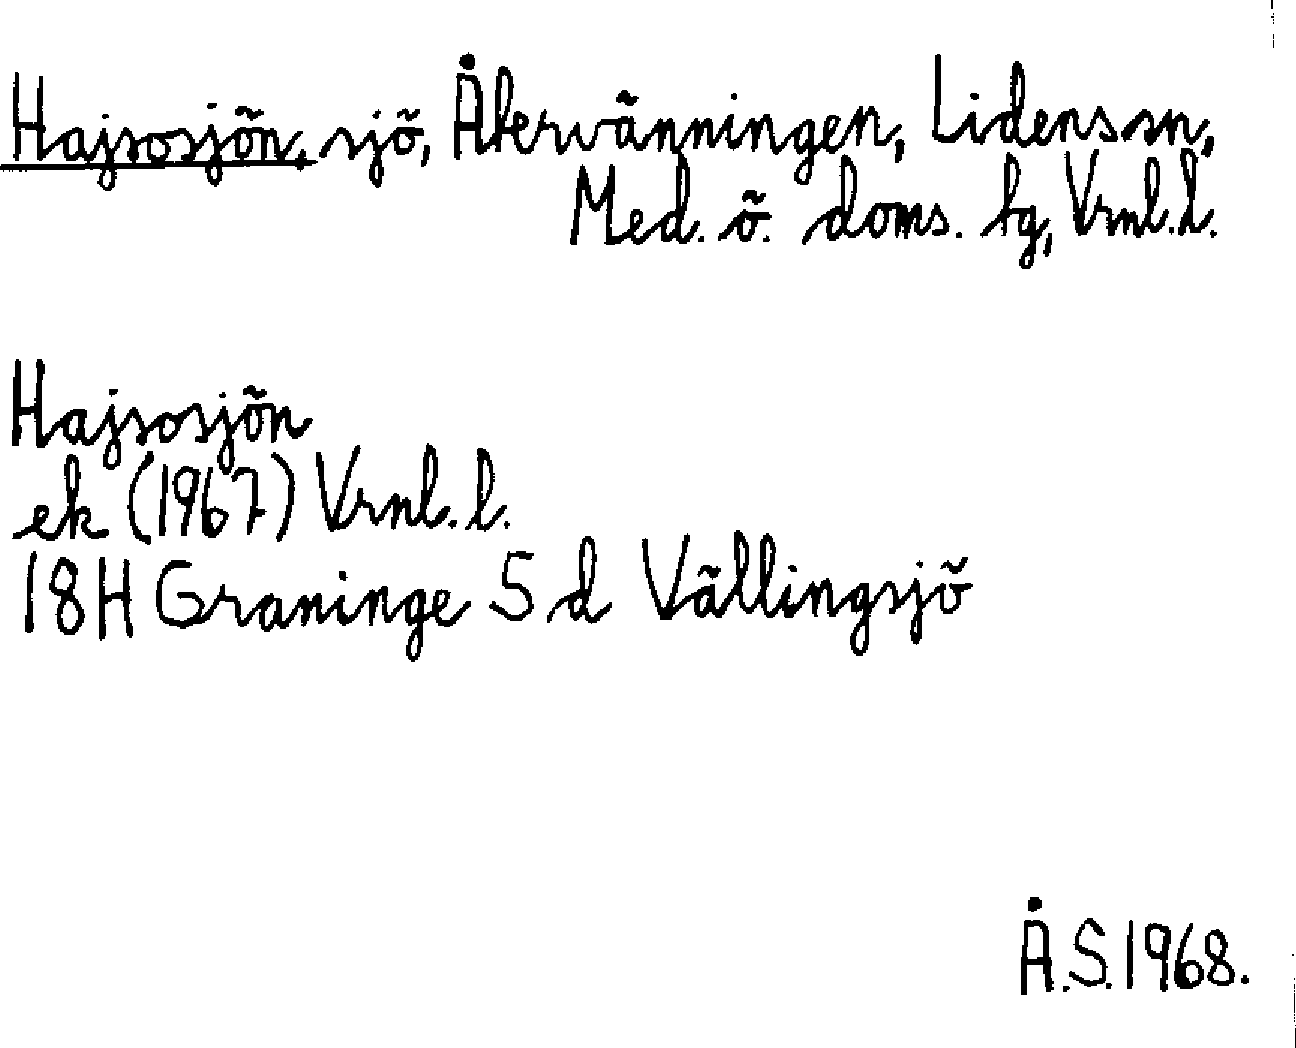 Hajsosjön, sjö, Åkervänningen, Lidens sn,
Med. ö. doms. fg, Vrnl.l.
Hajsosjön
ek (1967) Vrnl.l.
18H Graninge 5 d Vällingsjö
Å.S.1968.